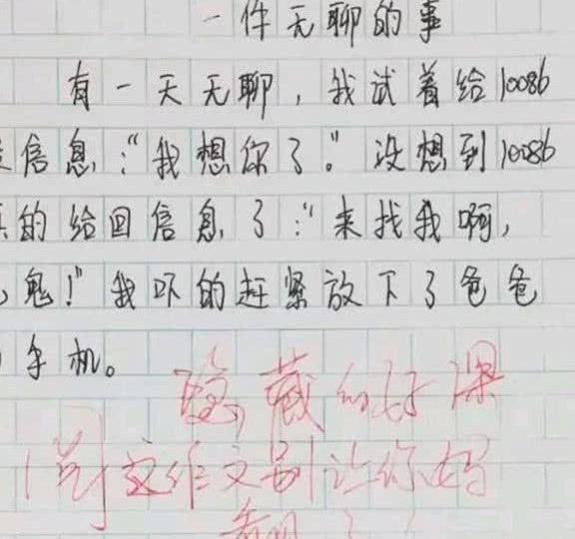 一件无聊的事
有一天无聊，我试着给10086
信息："我想你了。"没想到10086
的给回信息了："来找我啊，
鬼！"我吓的赶紧放下了爸爸
手机。
隐藏的好深
这作文别让你妈